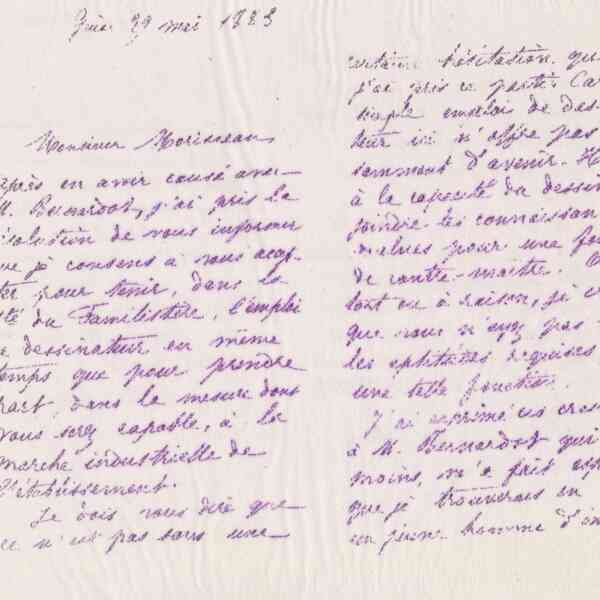 Guise 29 mai 1883
Monsieur Morisseau
après en avoir causé avec
M. Bernardot, j'ai pris la
résolution de vous informer
que je consens à vous accep-
ter pour tenir, dans la
Sté du Familistère, l'emploi
de dessinateur en même
temps que pour prendre
part, dans la mesure dont
vous serez capable, à la
marche industrielle de
l'établissement.
Je dois vous dire que
ce n'est pas sans une
certaine hésitation que
j'ai pris ce parti. Car
simple emploi de des-
teur ici n'offre pas
samment d'avenir.
à la capacité du dessin
joindre les connaissan
pour une fo
de contre-maître.
tort ou à raison, je
que vous n'ayez pas
les aptitudes requises
une telle fonction.
J'ai exprimé ces
à M. Bernardot qui
moins, m'a fait esp
que je trouverais en
un jeune homme d'in